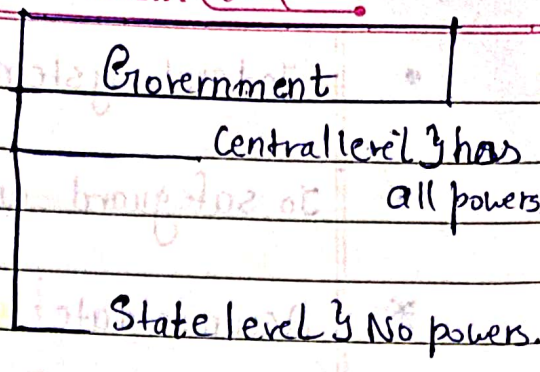 Government
Central level } has
all powers
State level } No powers.